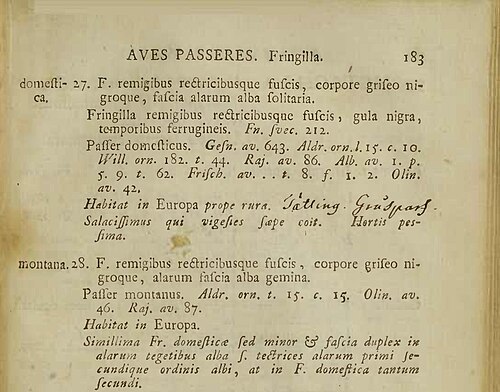 AVES PASSERES. Fringilla. 183
domesti- 27. F. remigibus rectricibusque fuſcis, corpore griſeo ni-
ca. groque, faſcia alarum alba ſolitaria.
Fringilla remigibus rectricibusque fuſcis, gula nigra,
temporibus ferrugineis. Fn. ſvec. 212.
Paſſer domeſticus. Geſn. av. 643. Aldr. orn. l. 15. c. 10.
Will. orn. 182. t. 44. Raj. av. 86. Alb. av. 1. p.
5. 9. t. 62. Friſch. av. . . t. 8. f. 1. 2. Olin.
av. 42.
Habitat in Europa prope rura. Tätting. Gråsparf.
Salaciſſimus qui vigeſies ſæpe coit. Hortis peſ-
ſima.
montana. 28. F. remigibus rectricibusque fuſcis, corpore griſeo ni-
groque, alarum faſcia alba gemina.
Paſſer montanus. Aldr. orn. t. 15. c. 15. Olin. av.
46. Raj. av. 87.
Habitat in Europa.
Simillima Fr. domeſticæ ſed minor & faſcia duplex in
alarum tegetibus alba ſ. tectrices alarum primi ſe-
cundique ordinis albi, at in F. domeſtica tantum
ſecundi.